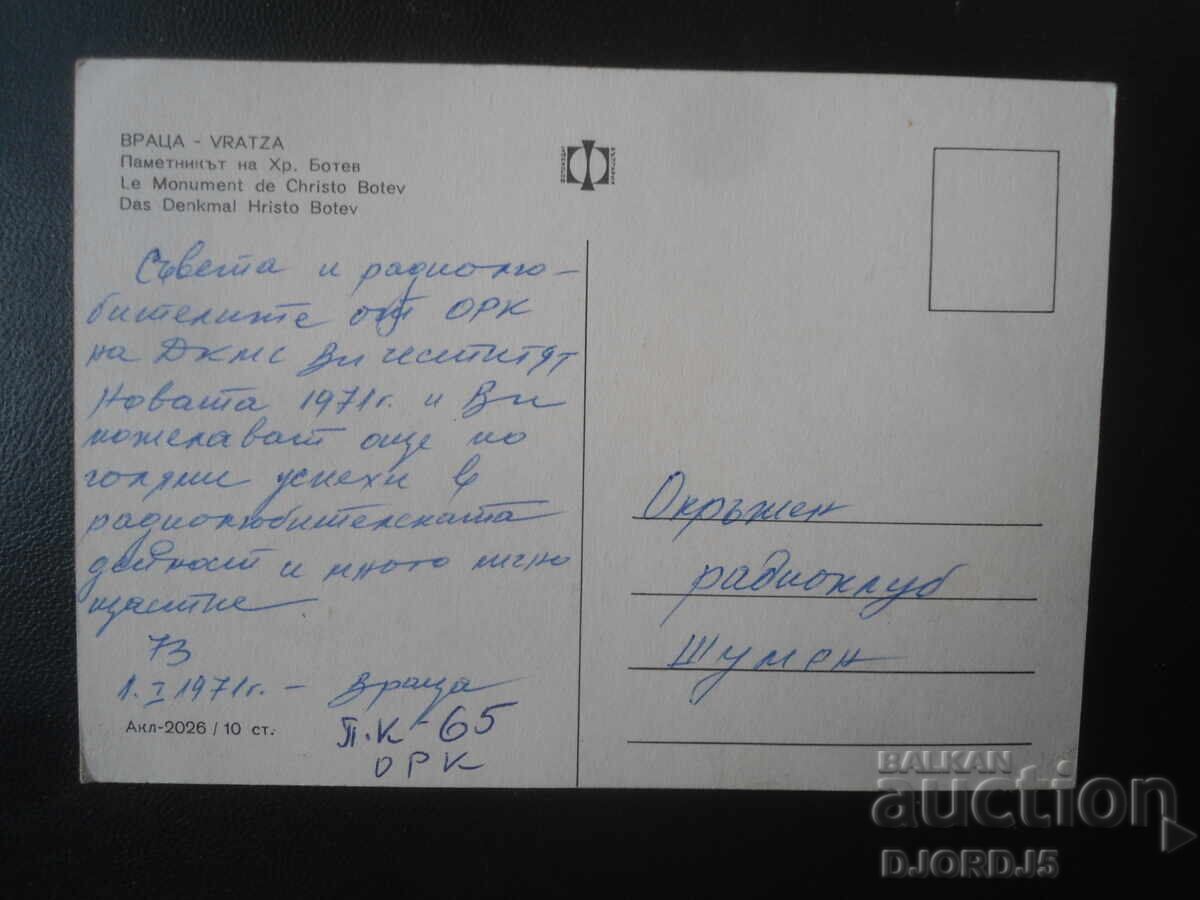 ВРАЦА - VRATZA
Паметникът на Хр. Ботев
Le Monument de Christo Botev
Das Denkmal Hristo Botev
Съвета и радиолю-
бителите от ОРК
на ДКМС Ви честитят
Новата 1971 г. и Ви
пожелават още по
големи успехи в
радиолюбителската
дейност и много лично
щастие.
73
1. I 1971 г. – Враца
П.К - 65
ОРК
Акл-2026 / 10 ст.
Окръжен
радиоклуб
Шумен
BALKAN
auction
DJORDJ5